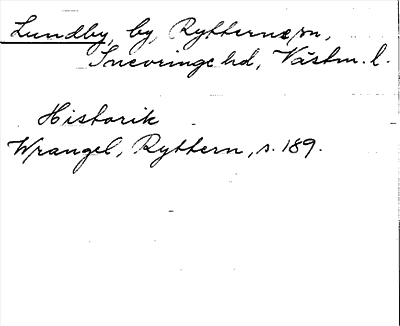 Lundby, by, Rytterne sn,
Snevringe hd, Västm. l.
Historik
Wrangel, Ryttern, s. 189.